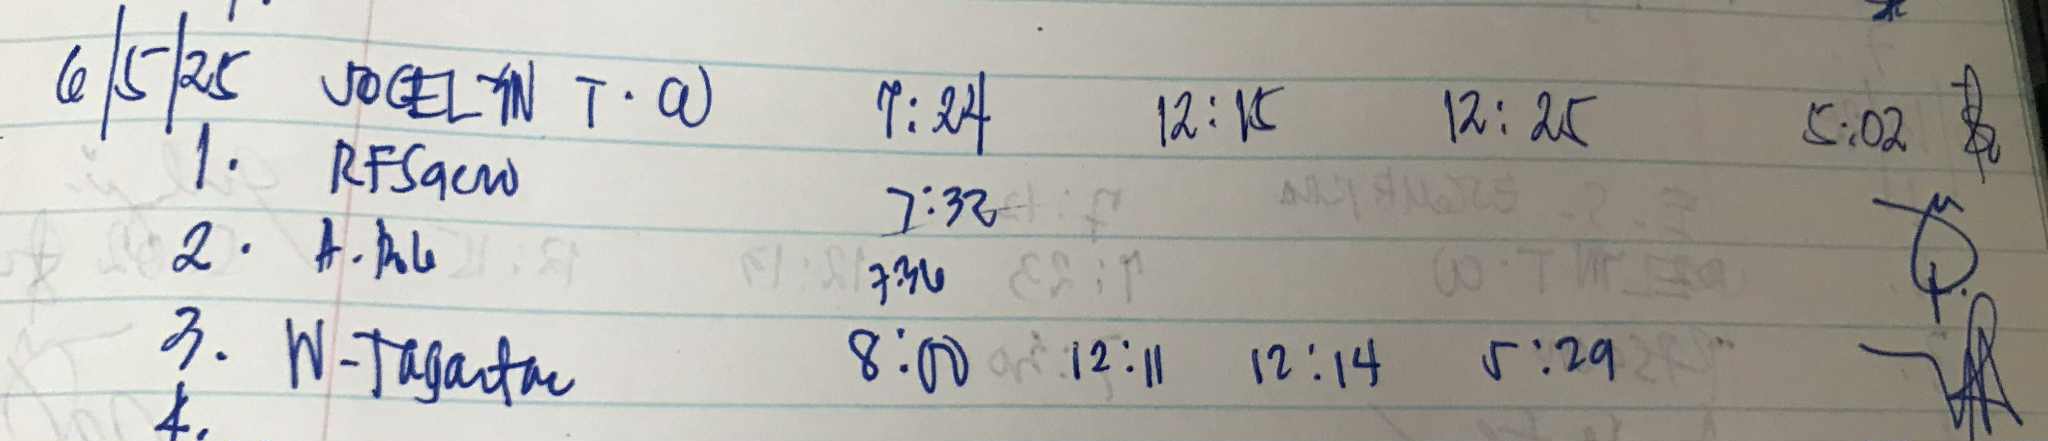 6/5/25 JOCELYN T. 7:24 12:15 12:25 5:02
1. 7:32
2. A. 7:36
3. W-Tagartac 8:00 12:11 12:14 5:29
4.